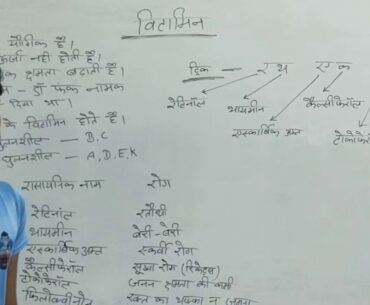 विटामिन
यौगिक है।
ऊर्जा नही होती है।
क क्षमता बढाती है।
- डॉ फंक नामक
दिया था।
के विटामिन होते हैं।
घुलनशील — B,C
घुलनशील — A,D,E,K
ट्रिक — र थ ए क
रेटिनॉल थायमीन कैल्सीफेरॉल
एस्कार्बिक अम्ल टोकोफे
रासायनिक नाम रोग
रेटिनॉल रतौंधी
थायमीन बेरी-बेरी
एस्कार्बिक अम्ल स्कर्वी रोग
कैल्सीफेरॉल सूखा रोग (रिकेट्स)
टोकोफेरॉल जनन क्षमता की कमी
फिलोक्वीनोन रक्त का थक्का न जमना